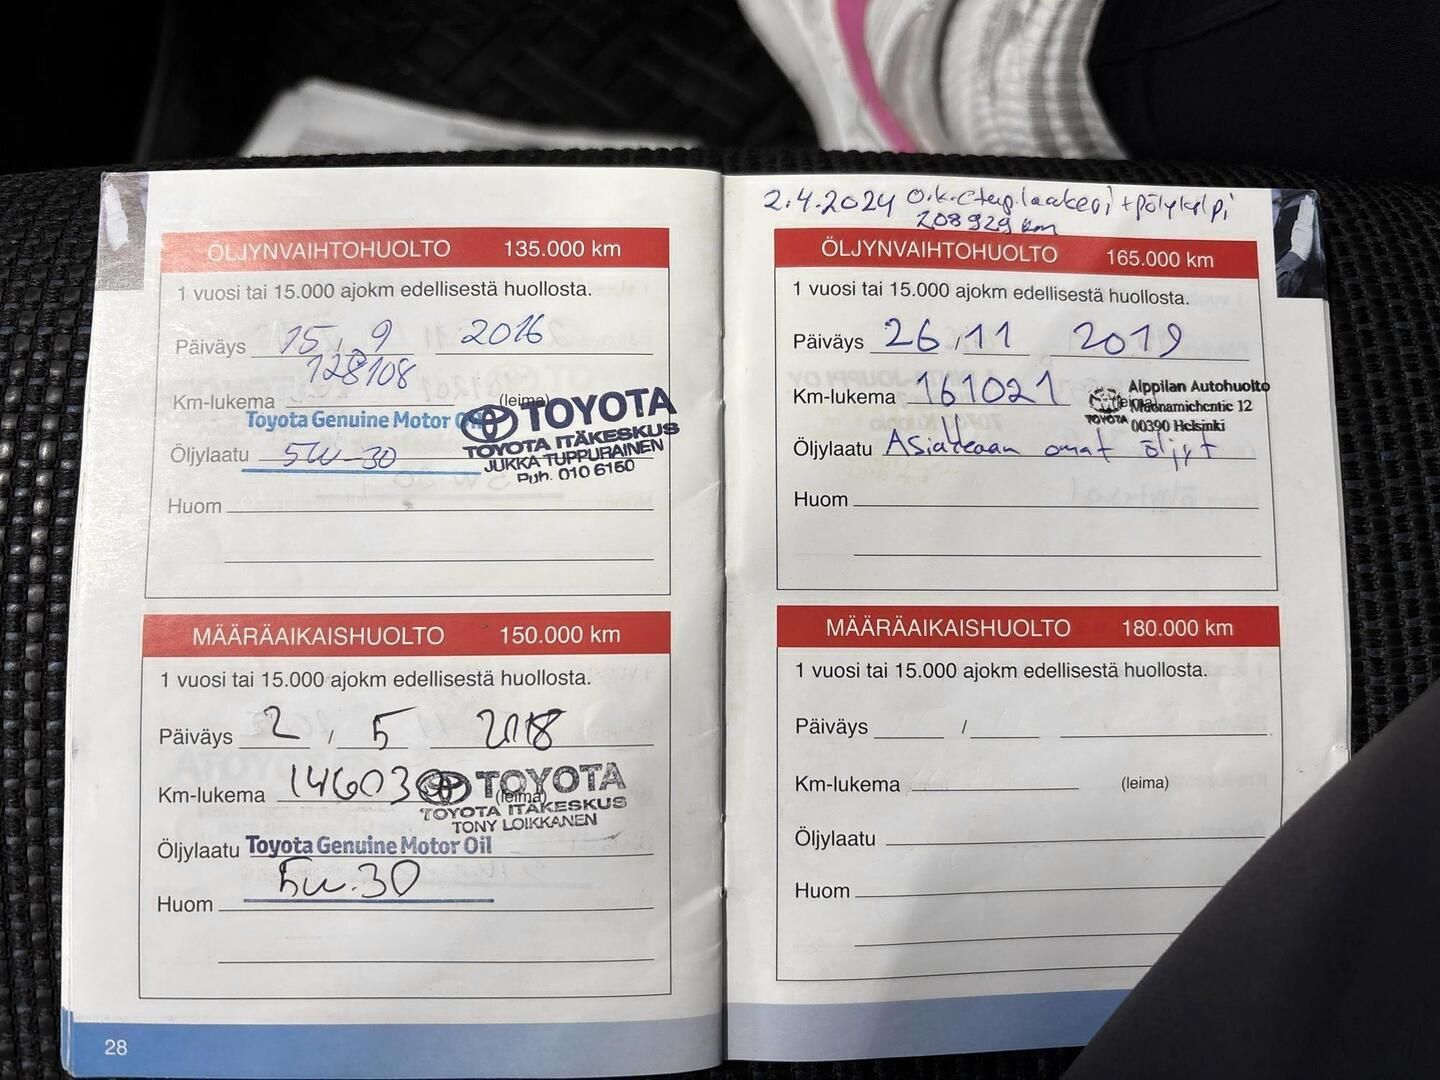 ÖLJYNVAIHTOHUOLTO 135.000 km
1 vuosi tai 15.000 ajokm edellisestä huollosta.
Päiväys 15 / 9 2016
128108
Km-lukema (leima)
Toyota Genuine Motor Oil
TOYOTA
TOYOTA ITÄKESKUS
JUKKA TUPPURAINEN
Puh. 010 6150
Öljylaatu 5W-30
Huom
MÄÄRÄAIKAISHUOLTO 150.000 km
1 vuosi tai 15.000 ajokm edellisestä huollosta.
Päiväys 2 / 5 2018
Km-lukema 14603 (leima)
TOYOTA
TOYOTA ITÄKESKUS
TONY LOIKKANEN
Öljylaatu Toyota Genuine Motor Oil
5W.30
Huom
28
2.4.2024 o.k. laakeri + pölykₗpi
208929 km
ÖLJYNVAIHTOHUOLTO 165.000 km
1 vuosi tai 15.000 ajokm edellisestä huollosta.
Päiväys 26 / 11 2019
Km-lukema 161021 (leima)
Alppilan Autohuolto
12
TOYOTA 00390 Helsinki
Öljylaatu Asiakkaan omat öljyt
Huom
MÄÄRÄAIKAISHUOLTO 180.000 km
1 vuosi tai 15.000 ajokm edellisestä huollosta.
Päiväys /
Km-lukema (leima)
Öljylaatu
Huom